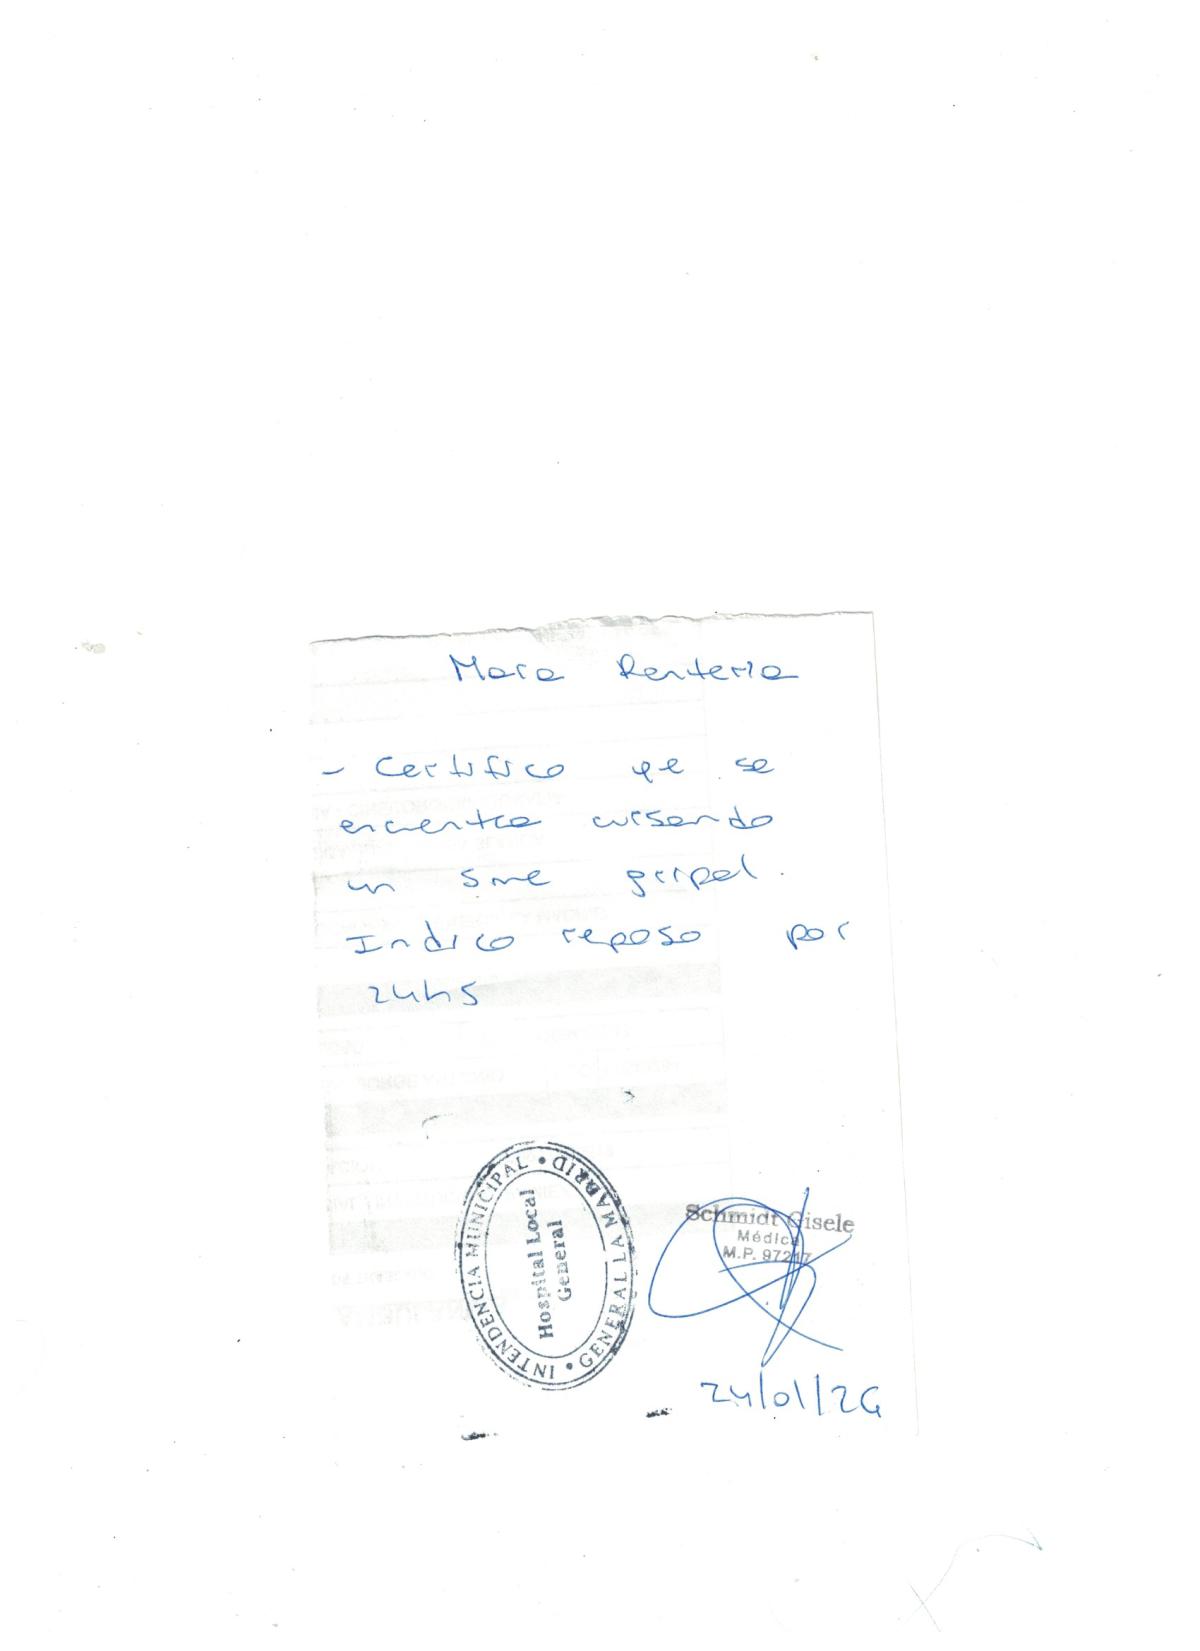 Mara Renteria
- Certifico qe se
encuentra cursando
un Sme gripal.
Indico reposo por
24hs
INTENDENCIA MUNICIPAL • GENERAL LA MADRID •
Hospital Local
General
Schmidt Gisele
Médica
M.P. 97217
24/01/26